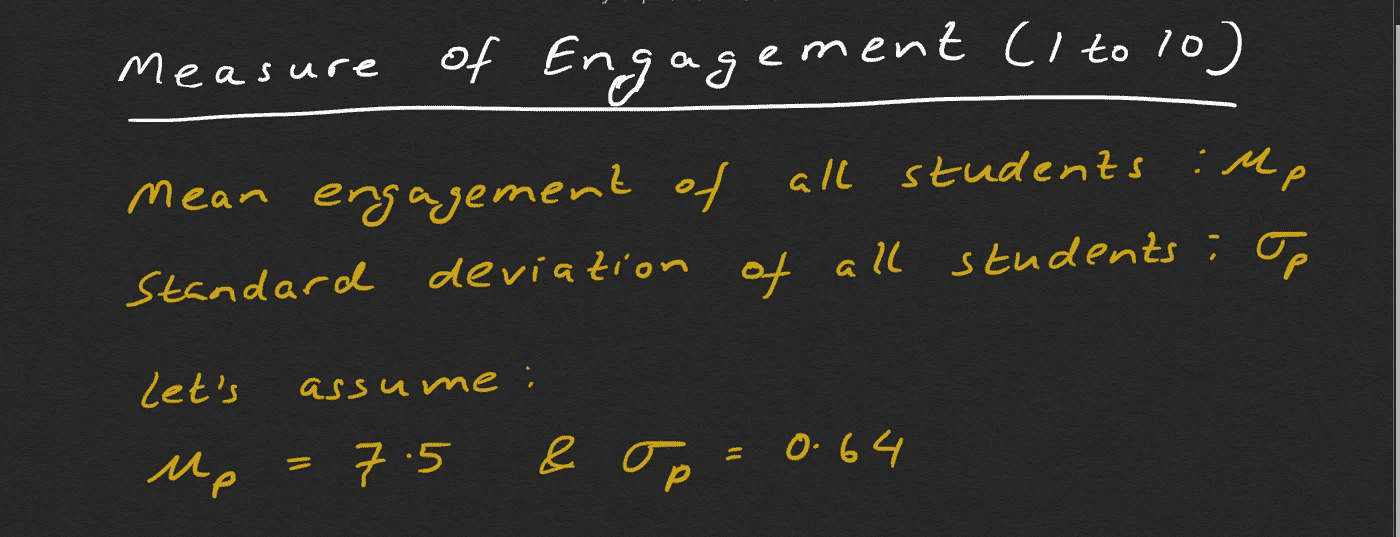 Measure of Engagement (1 to 10)
Mean engagement of all students : μp
Standard deviation of all students : σp
Let's assume :
μp = 7.5 & σp = 0.64